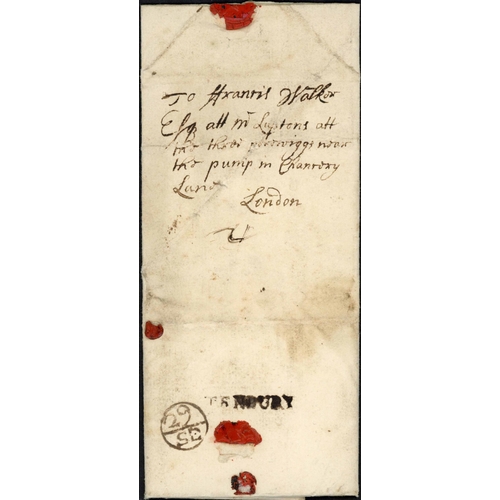 To ffrancis Walker
Esq att mr Luptons att
the three perewiggs near
the pump in Chancery
Lane
London
TENBURY
29
SE